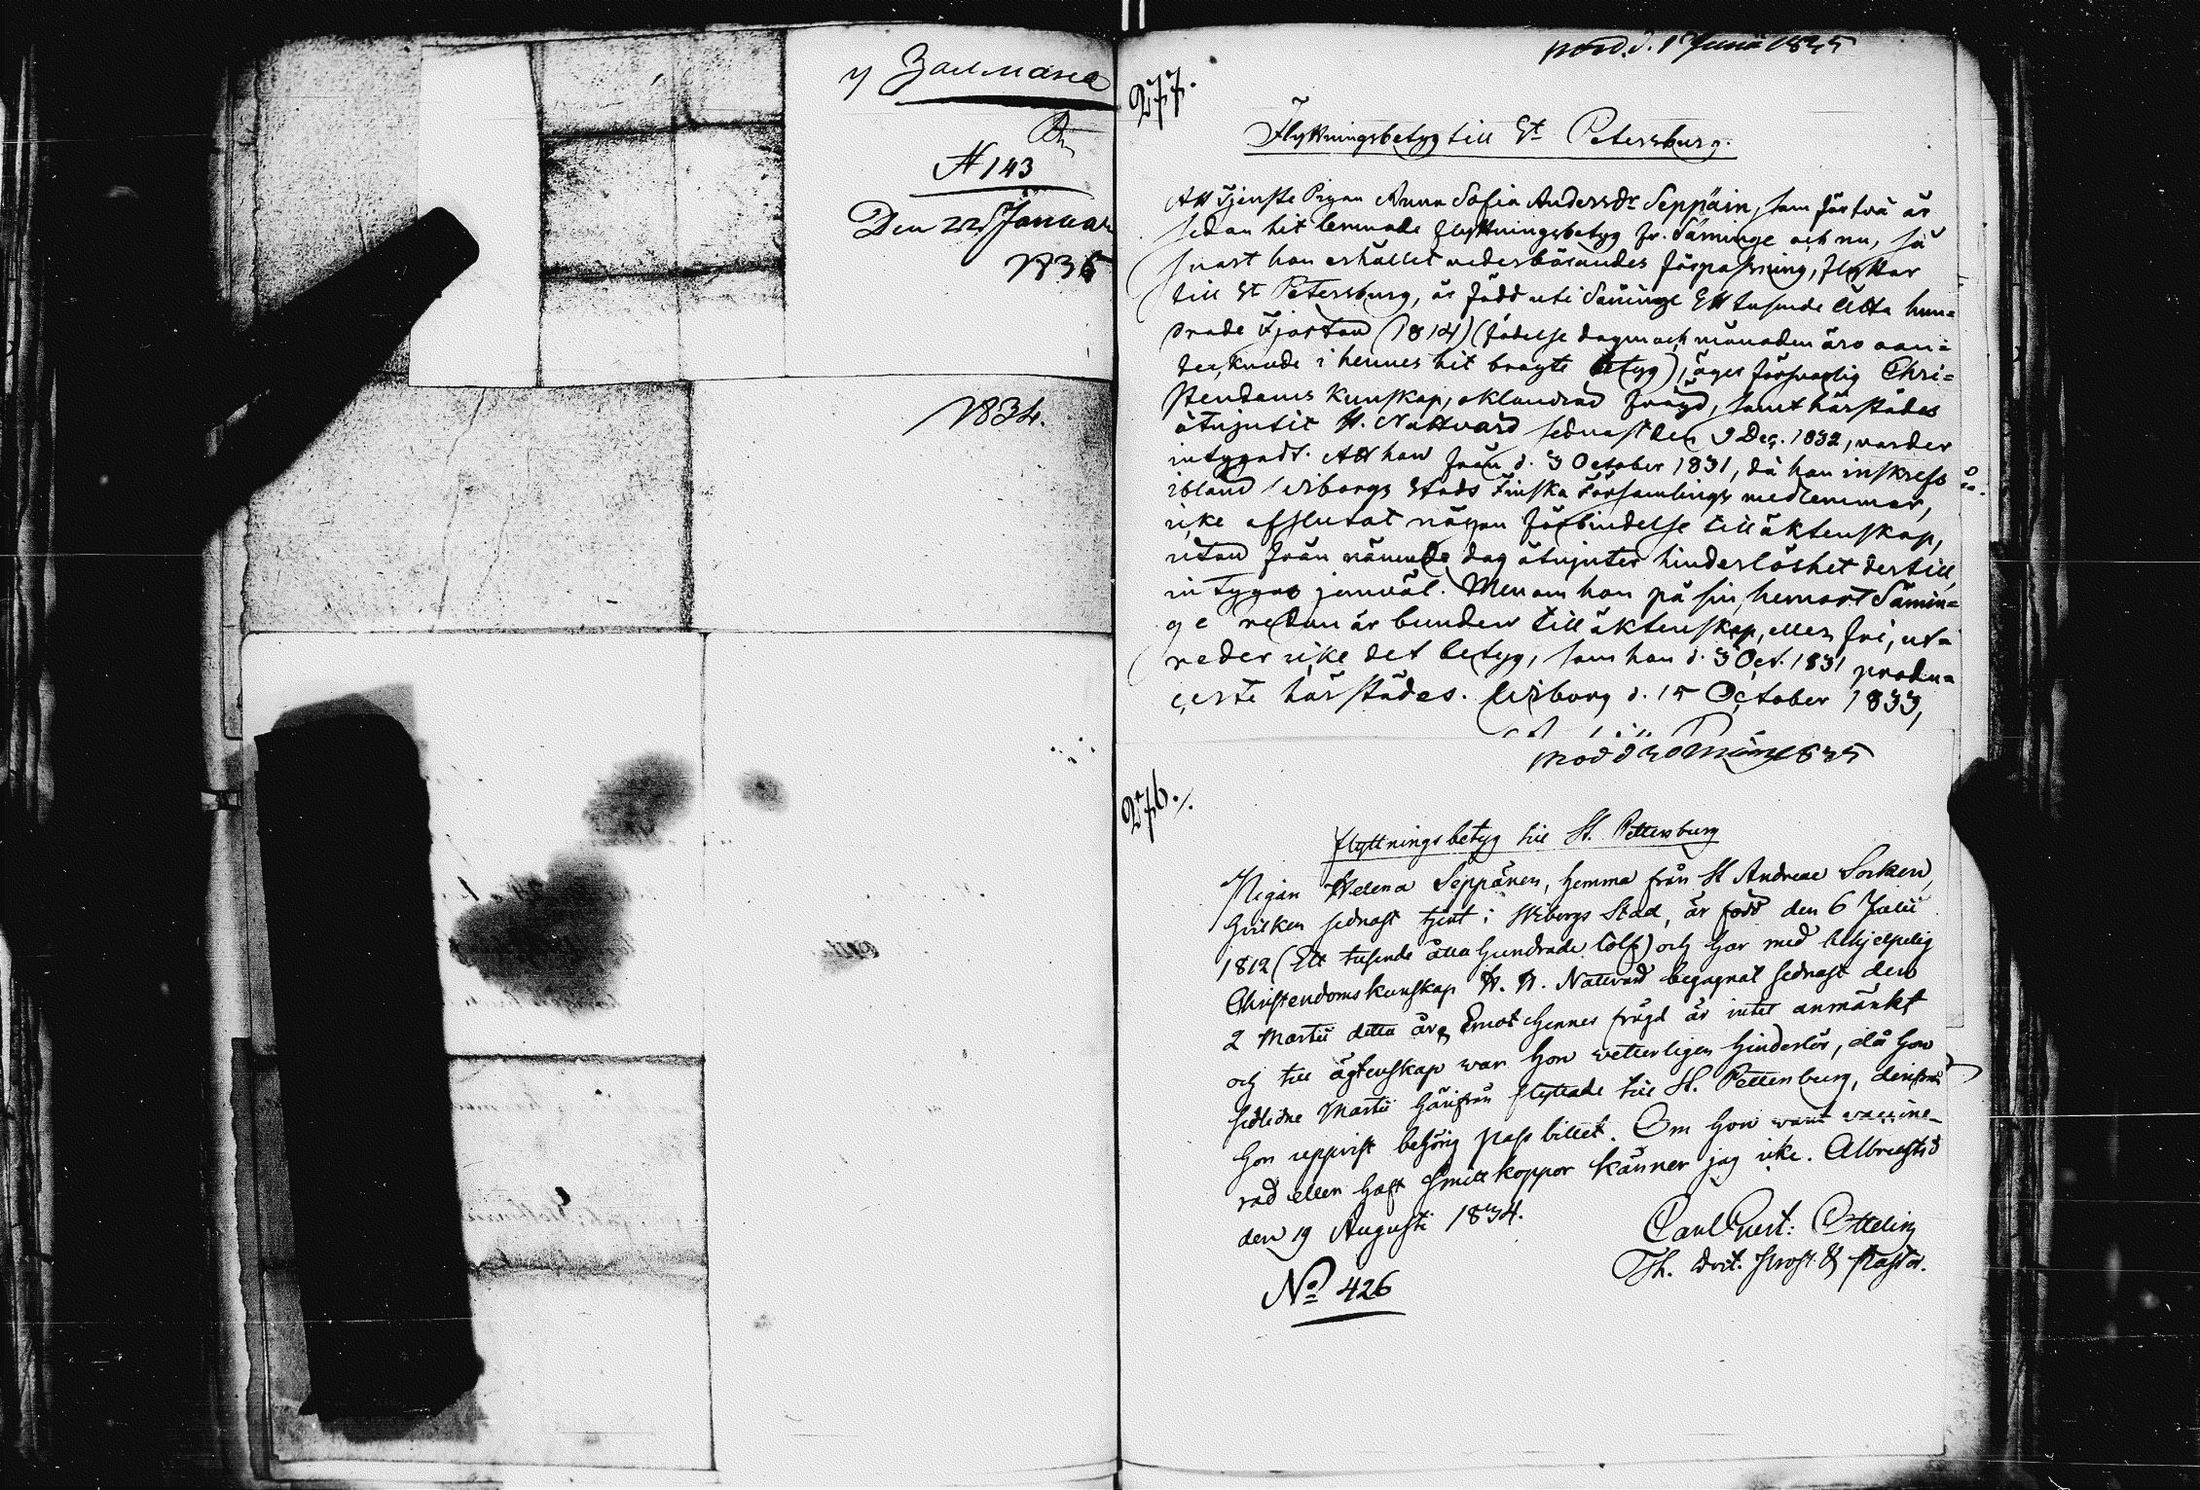 у Залмана
N 143
Den 22 Januar
1835
1834.
prod. d. 1 Junii 1835
277.
Flyttningsbetyg till St Petersburg.
Att Tjenste Pigan Anna Sofia Andersdr Seppäin, som för två år
sedan hit lemnade flyttningsbetyg fr. Säminge och nu, så
snart hon erhållet vederbörandes förpassning, flyttar
till St Petersburg, är född uti Säminge Ett tusende Åtta hun=
drade Fjorton (1814) (födelse dagen och månaden äro oan=
tecknade i hennes hit bragte betyg), äger försvarlig Chri=
stendoms kunskap, oklandrad frägd, samt härstädes
åtnjutit H. Nattvard sednast den 9 Dec. 1832, varder
intygadt. Att hon från d. 3 October 1831, då hon inskrefs
ibland Wiborgs Stads Finska Församlings medlemmar,
icke afslutat någon förbindelse till äktenskap,
utan från nämnde dag åtnjuter hinderlöshet dertill,
intygas jemväl. Men om hon på sin hemort Sämin=
ge redan är bunden till äktenskap, eller fri, ut=
reder icke det betyg, som hon d. 3 Oct. 1831 produ=
certe härstädes. Wiborg d. 15 October 1833,
prod d 30 Mars 1835
276./.
Flyttningsbetyg till St. Pettersburg
Pigan Helena Seppänen, hemma från St Andreae Socken,
hvilken sednast tjent i Wiborgs Stad, är född den 6 Julii
1812 (Ett tusende åtta hundrade tolf) och har med behjelpelig
Christendoms kunskap H. H. Nattvard begagnat sednast den
2 Martii detta år, Emot hennes frägd är intet anmärkt
och till ägtenskap war hon wetterligen hinderlös, då hon
sidledne Martii härifrån flyttade till St. Pettersburg,
hon uppvist behörig pass billet. Om hon varit vaccine-
rad eller haft Smittkoppor känner jag icke.
den 19 Augusti 1834.
Carl Gust: Ottelin
Th. Doct. Prost & Pastor.
No 426